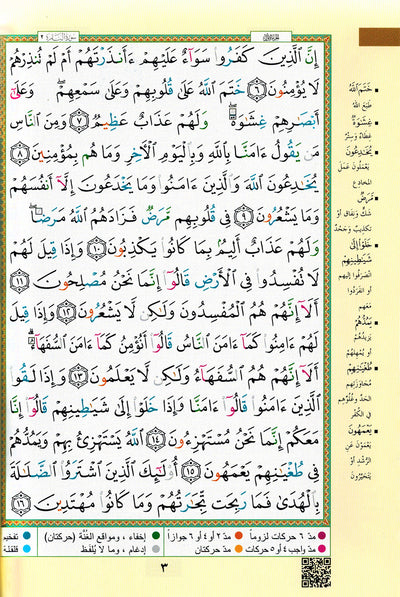 سورة البقرة ٢
الجزء الأول
إِنَّ ٱلَّذِينَ كَفَرُوا۟ سَوَآءٌ عَلَيْهِمْ ءَأَنذَرْتَهُمْ أَمْ لَمْ تُنذِرْهُمْ
لَا يُؤْمِنُونَ ٦ خَتَمَ ٱللَّهُ عَلَىٰ قُلُوبِهِمْ وَعَلَىٰ سَمْعِهِمْ ۖ وَعَلَىٰٓ
أَبْصَٰرِهِمْ غِشَٰوَةٌ ۖ وَلَهُمْ عَذَابٌ عَظِيمٌ ٧ وَمِنَ ٱلنَّاسِ
مَن يَقُولُ ءَامَنَّا بِٱللَّهِ وَبِٱلْيَوْمِ ٱلْءَاخِرِ وَمَا هُم بِمُؤْمِنِينَ ٨
يُخَٰدِعُونَ ٱللَّهَ وَٱلَّذِينَ ءَامَنُوا۟ وَمَا يَخْدَعُونَ إِلَّآ أَنفُسَهُمْ
وَمَا يَشْعُرُونَ ٩ فِى قُلُوبِهِم مَّرَضٌ فَزَادَهُمُ ٱللَّهُ مَرَضًا ۖ
وَلَهُمْ عَذَابٌ أَلِيمٌۢ بِمَا كَانُوا۟ يَكْذِبُونَ ١٠ وَإِذَا قِيلَ لَهُمْ
لَا تُفْسِدُوا۟ فِى ٱلْأَرْضِ قَالُوٓا۟ إِنَّمَا نَحْنُ مُصْلِحُونَ ١١
أَلَآ إِنَّهُمْ هُمُ ٱلْمُفْسِدُونَ وَلَٰكِن لَّا يَشْعُرُونَ ١٢ وَإِذَا قِيلَ
لَهُمْ ءَامِنُوا۟ كَمَآ ءَامَنَ ٱلنَّاسُ قَالُوٓا۟ أَنُؤْمِنُ كَمَآ ءَامَنَ ٱلسُّفَهَآءُ ۗ
أَلَآ إِنَّهُمْ هُمُ ٱلسُّفَهَآءُ وَلَٰكِن لَّا يَعْلَمُونَ ١٣ وَإِذَا لَقُوا۟
ٱلَّذِينَ ءَامَنُوا۟ قَالُوٓا۟ ءَامَنَّا وَإِذَا خَلَوْا۟ إِلَىٰ شَيَٰطِينِهِمْ قَالُوٓا۟ إِنَّا
مَعَكُمْ إِنَّمَا نَحْنُ مُسْتَهْزِءُونَ ١٤ ٱللَّهُ يَسْتَهْزِئُ بِهِمْ وَيَمُدُّهُمْ
فِى طُغْيَٰنِهِمْ يَعْمَهُونَ ١٥ أُو۟لَٰٓئِكَ ٱلَّذِينَ ٱشْتَرَوُا۟ ٱلضَّلَٰلَةَ
بِٱلْهُدَىٰ فَمَا رَبِحَت تِّجَٰرَتُهُمْ وَمَا كَانُوا۟ مُهْتَدِينَ ١٦
خَتَمَ اللهُ
طَبَعَ اللهُ
غِشَٰوَةٌ
غِطَاءٌ وَسِتْرٌ
يُخَٰدِعُونَ
يَعْمَلُونَ عَمَلَ
المُخَادِعِ
مَرَضٌ
شَكٌّ وَنِفَاقٌ أو
تَكْذِيبٌ وَجَحْدٌ
خَلَوْا۟ إِلَىٰ
شَيَٰطِينِهِمْ
انْصَرَفُوا إليهم
أو انْفَرَدُوا
معهم
يَمُدُّهُمْ
يَزِيدُهُمْ
أو يُمْهِلُهُمْ
طُغْيَٰنِهِمْ
مُجَاوَزَتِهِم
الحَدَّ وَغُلُوِّهِم
في الكُفْرِ
يَعْمَهُونَ
يَعْمَوْنَ عن
الرُّشْدِ أو
يَتَحَيَّرُونَ
مدّ ٦ حركات لزوماً
مدّ ٢ أو ٤ أو ٦ جوازاً
إخفاء، ومواقع الغُنَّة (حركتان)
تفخيم
مدّ واجب ٤ أو ٥ حركات
مدّ حركتان
إدغام، وما لا يُلفَظ
قلقلة
٣